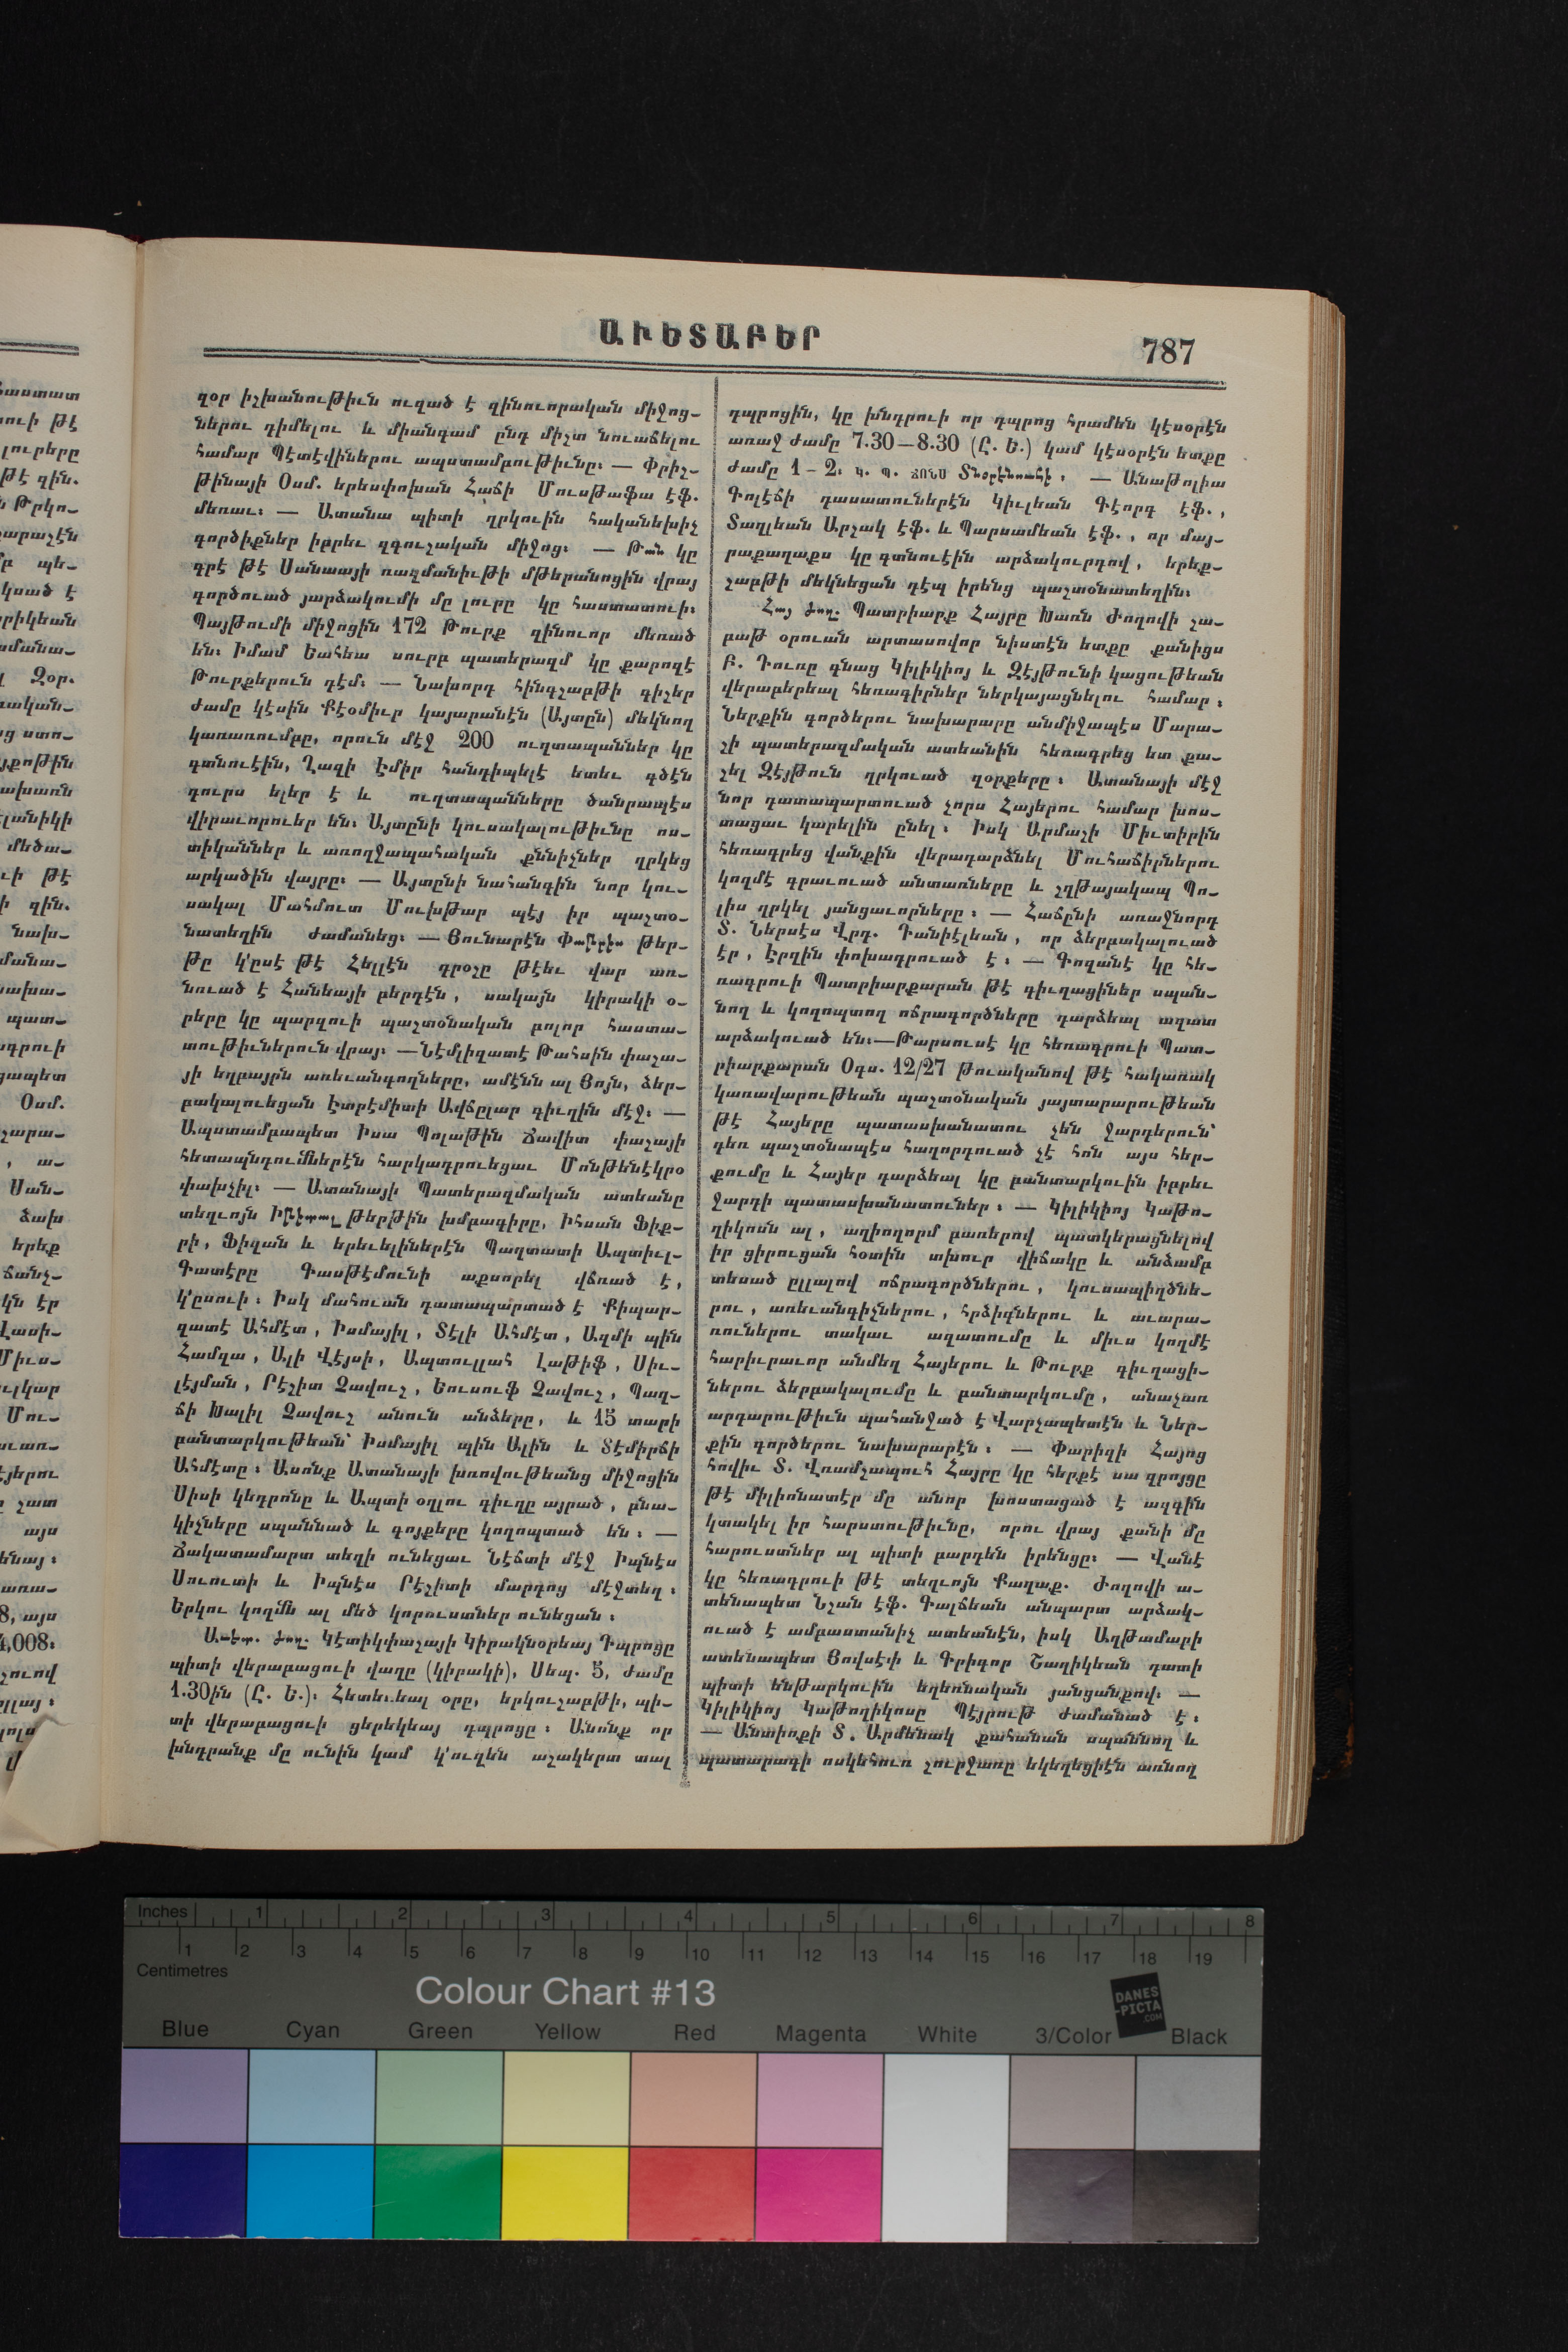 ԱՒԵՏԱԲԵՐ
787
զօր իշխանութիւն ուզած է զինուորական միջոց-
ներու դիմելու և միանգամ ընդ միշտ նուաճելու
համար Պէտէվիներու ապստամբութիւնը։ — Փրիշ-
թինայի Օսմ. երեսփոխան Հաճի Մուսթաֆա էֆ.
մեռաւ։ — Ատանա պիտի ղրկուին հականեխիչ
գործիքներ իբրեւ զգուշական միջոց։ — Թան կը
գրէ թէ Սանաայի ռազմանիւթի մթերանոցին վրայ
գործուած յարձակումի մը լուրը կը հաստատուի։
Պայթումի միջոցին 172 Թուրք զինուոր մեռած
են։ Իմամ Եահեա սուրբ պատերազմ կը քարոզէ
Թուրքերուն դէմ։ — Նախորդ հինգշաբթի գիշեր
ժամը կէսին Քէօմիւր կայարանէն (Այտըն) մեկնող
կառախումբը, որուն մէջ 200 ուղտապաններ կը
գտնուէին, Ղազի Էմիր հանդիպելէ ետեւ գծէն
դուրս ելեր է և ուղտապանները ծանրապէս
վիրաւորուեր են։ Այտընի կուսակալութիւնը ոս-
տիկաններ և առողջապահական քննիչներ ղրկեց
արկածին վայրը։ — Այտընի նահանգին նոր կու-
սակալ Մահմուտ Մուխթար պէյ իր պաշտօ-
նատեղին ժամանեց։ — Յունարէն Փաթրիս թեր-
թը կ'ըսէ թէ Հելլէն դրօշը թէեւ վար առ-
նուած է Հանեայի բերդէն, սակայն կիրակի օ-
րերը կը պարզուի պաշտօնական բոլոր հաստա-
տութիւներուն վրայ։ — Նէմլիզատէ Թահսին փաշա-
յի եղբայրն առեւանգողները, ամէնն ալ Յոյն, ձեր-
բակալուեցան Էտրէմիտի Ավճըլար գիւղին մէջ։ —
Ապստամբապետ Իսա Պոլաթին Ճավիտ փաշայի
հետապնդումներէն հարկադրուեցաւ Մոնթենէկրօ
փախչիլ։ — Ատանայի Պատերազմական ատեանը
տեղւոյն Իթիտալ թերթին խմբագիրը, Իհսան Ֆիք-
րի, Ֆիզան և երեւելիներէն Պաղտատի Ապտիւլ-
Գատէրը Գասթէմունի աքսորել վճռած է,
կ'ըսուի։ Իսկ մահուան դատապարտած է Քիպար-
զատէ Ահմէտ, Իսմայիլ, Տէլի Ահմէտ, Ազմի պին
Համզա, Ալի Վէյսի, Ապտուլլահ Լաթիֆ, Սիւ-
լէյման, Րէշիտ Չավուշ, Եուսուֆ Չավուշ, Պաղ-
ճի Խալիլ Չավուշ անուն անձերը, և 15 տարի
բանտարկութեան՝ Իսմայիլ պին Ալին և Տէմիրճի
Ահմէտը։ Ասոնք Ատանայի խռովութեանց միջոցին
Սիսի կեդրոնը և Ապտի օղլու գիւղը այրած, բնա-
կիչները սպաննած և գոյքերը կողոպտած են։ —
Ճակատամարտ տեղի ունեցաւ Նէճտի մէջ Իպնէս
Սուուտի և Իպնէս Րէշիտի մարդոց մէջտեղ։
Երկու կողմն ալ մեծ կորուստներ ունեցան։
Աւետ. Ժող. Կէտիկփաշայի Կիրակնօրեայ Դպրոցը
պիտի վերաբացուի վաղը (կիրակի), Սեպ. 5, ժամը
1.30ին (Ը. Ե.)։ Հետեւեալ օրը, երկուշաբթի, պի-
տի վերաբացուի ցերեկեայ դպրոցը։ Անոնք որ
խնդրանք մը ունին կամ կ'ուզեն աշակերտ տալ
դպրոցին, կը խնդրուի որ դպրոց հրամեն կէսօրէն
առաջ ժամը 7.30—8.30 (Ը. Ե.) կամ կէսօրէն ետքը
ժամը 1-2։ Կ. Պ. ՃՈՆՍ Տնօրէնուհի։ — Անաթոլիա
Գոլէճի դասատուներէն Կիւլեան Գէորգ էֆ.,
Տաղլեան Արշակ էֆ. և Պարսամեան էֆ., որ մայ-
րաքաղաքս կը գտնուէին արձակուրդով, երեք-
շաբթի մեկնեցան դէպ իրենց պաշտօնատեղին։
Հայ Ժող. Պատրիարք Հայրը Խառն Ժողովի շա-
բաթ օրուան արտասովոր նիստէն ետքը քանիցս
Բ. Դուռը գնաց Կիլիկիոյ և Զէյթունի կացութեան
վերաբերեալ հեռագիրներ ներկայացնելու համար։
Ներքին գործերու նախարարը անմիջապէս Մարա-
շի պատերազմական ատեանին հեռագրեց ետ քա-
շել Զէյթուն ղրկուած զօրքերը։ Ատանայի մէջ
նոր դատապարտուած չորս Հայերու համար խոս-
տացաւ կարելին ընել։ Իսկ Արմաշի Միւտիրին
հեռագրեց վանքին վերադարձնել Մուհաճիրներու
կողմէ գրաւուած անտառները և շղթայակապ Պո-
լիս ղրկել յանցաւորները։ — Հաճընի առաջնորդ
Տ. Ներսէս Վրդ. Դանիէլեան, որ ձերբակալուած
էր, Էրզին փոխադրուած է։ — Գոզանէ կը հե-
ռագրուի Պատրիարքարան թէ գիւղացիներ սպան-
նող և կողոպտող ոճրագործները դարձեալ ազատ
արձակուած են։—Թարսուսէ կը հեռագրուի Պատ-
րիարքարան Օգս. 12/27 թուականով թէ հակառակ
կառավարութեան պաշտօնական յայտարարութեան
թէ Հայերը պատասխանատու չեն ջարդերուն՝
դեռ պաշտօնապէս հաղորդուած չէ հոն այս հեր-
քումը և Հայեր դարձեալ կը բանտարկուին իբրեւ
ջարդի պատասխանատուներ։ — Կիլիկիոյ Կաթո-
ղիկոսն ալ, աղիողորմ բառերով պատկերացնելով
իր ցիրուցան հօտին տխուր վիճակը և անձամբ
տեսած ըլլալով ոճրագործներու, կուսապիղծնե-
րու, առեւանգիչներու, հրձիգներու և աւարա-
ռուներու տակաւ ազատումը և միւս կողմէ
հարիւրաւոր անմեղ Հայերու և Թուրք գիւղացի-
ներու ձերբակալումը և բանտարկումը, անաչառ
արդարութիւն պահանջած է Վարչապետէն և Ներ-
քին գործերու նախարարէն։ — Փարիզի Հայոց
հովիւ Տ. Վռամշապուհ Հայրը կը հերքէ սա զրոյցը
թէ միլիոնատէր մը անոր խոստացած է ազգին
կտակել իր հարստութիւնը, որու վրայ քանի մը
հարուստներ ալ պիտի բարդեն իրենցը։ — Վանէ
կը հեռագրուի թէ տեղւոյն Քաղաք. Ժողովի ա-
տենապետ Նշան էֆ. Գալճեան անպարտ արձակ-
ուած է ամբաստանիչ ատեանէն, իսկ Աղթամարի
ատենապետ Յովսէփ և Գրիգոր Շաղիկեան դատի
պիտի ենթարկուին եղեռնական յանցանքով։ —
Կիլիկիոյ Կաթողիկոսը Պէյրութ ժամանած է։
— Անտիոքի Տ. Արմենակ քահանան սպաննող և
պատարագի ոսկեհուռ շուրջառը եկեղեցիէն առնող
Inches 1 2 3 4 5 6 7 8
1 2 3 4 5 6 7 8 9 10 11 12 13 14 15 16 17 18 19
Centimetres
Colour Chart #13
DANES
-PICTA
.COM
Blue Cyan Green Yellow Red Magenta White 3/Color Black